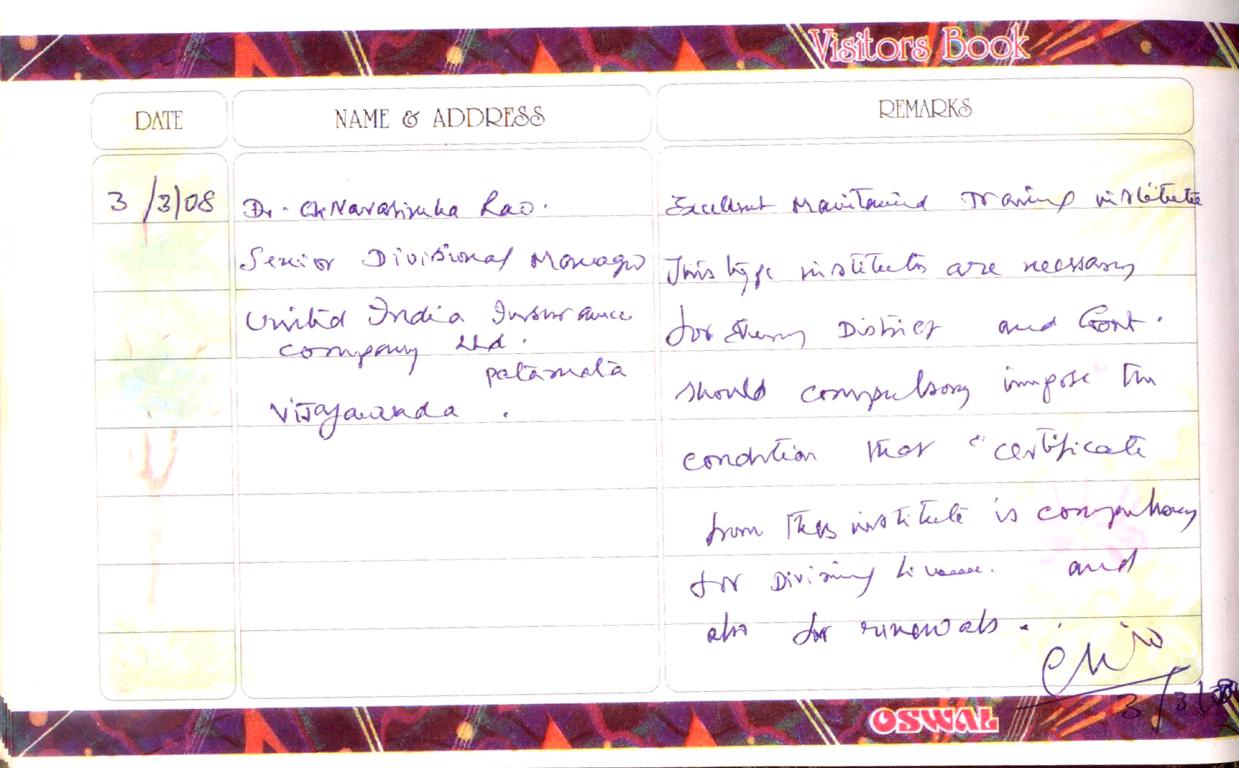 Visitors Book
DATE
NAME & ADDRESS
REMARKS
3/3/08
Dr. Ch Narasimha Rao.
Senior Divisional Manager
United India Insurance
company Ltd.
patamata
Vijayawada.
Excellent Maintained Training institute
This type institutes are necessary
for Every District and Govt.
should compulsory impose the
condition that "certificate
from this institute is compulsory
for Driving License. and
also for renewals.
3/3/08
OSWAL